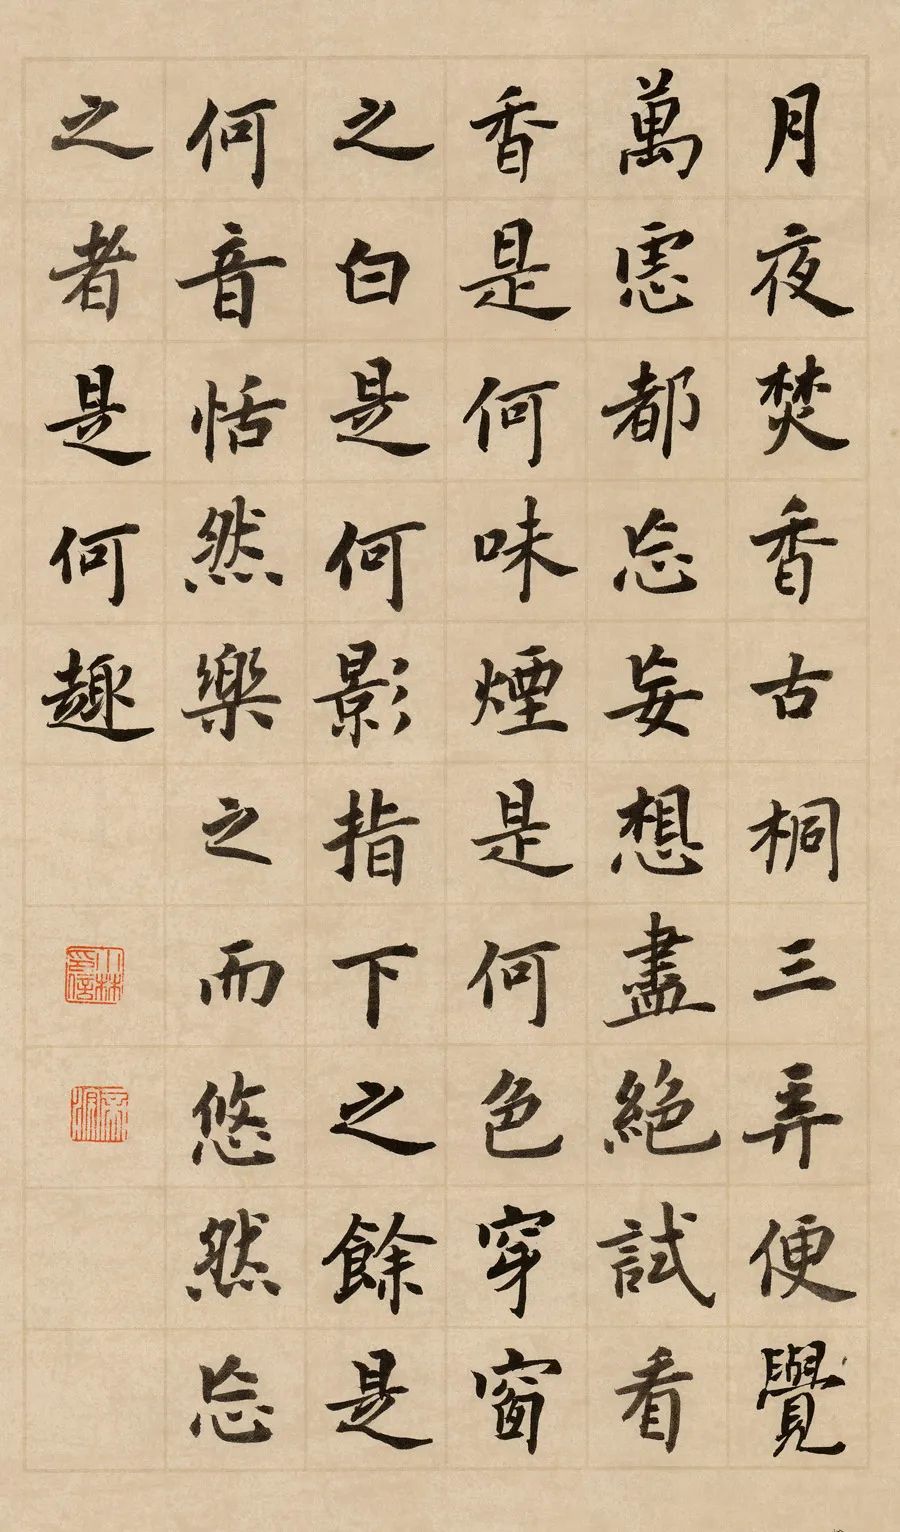 月夜焚香古桐三弄便覺
萬慮都忘妄想盡絶試看
香是何味煙是何色穿窗
之白是何影指下之餘是
何音恬然樂之而悠然忘
之者是何趣